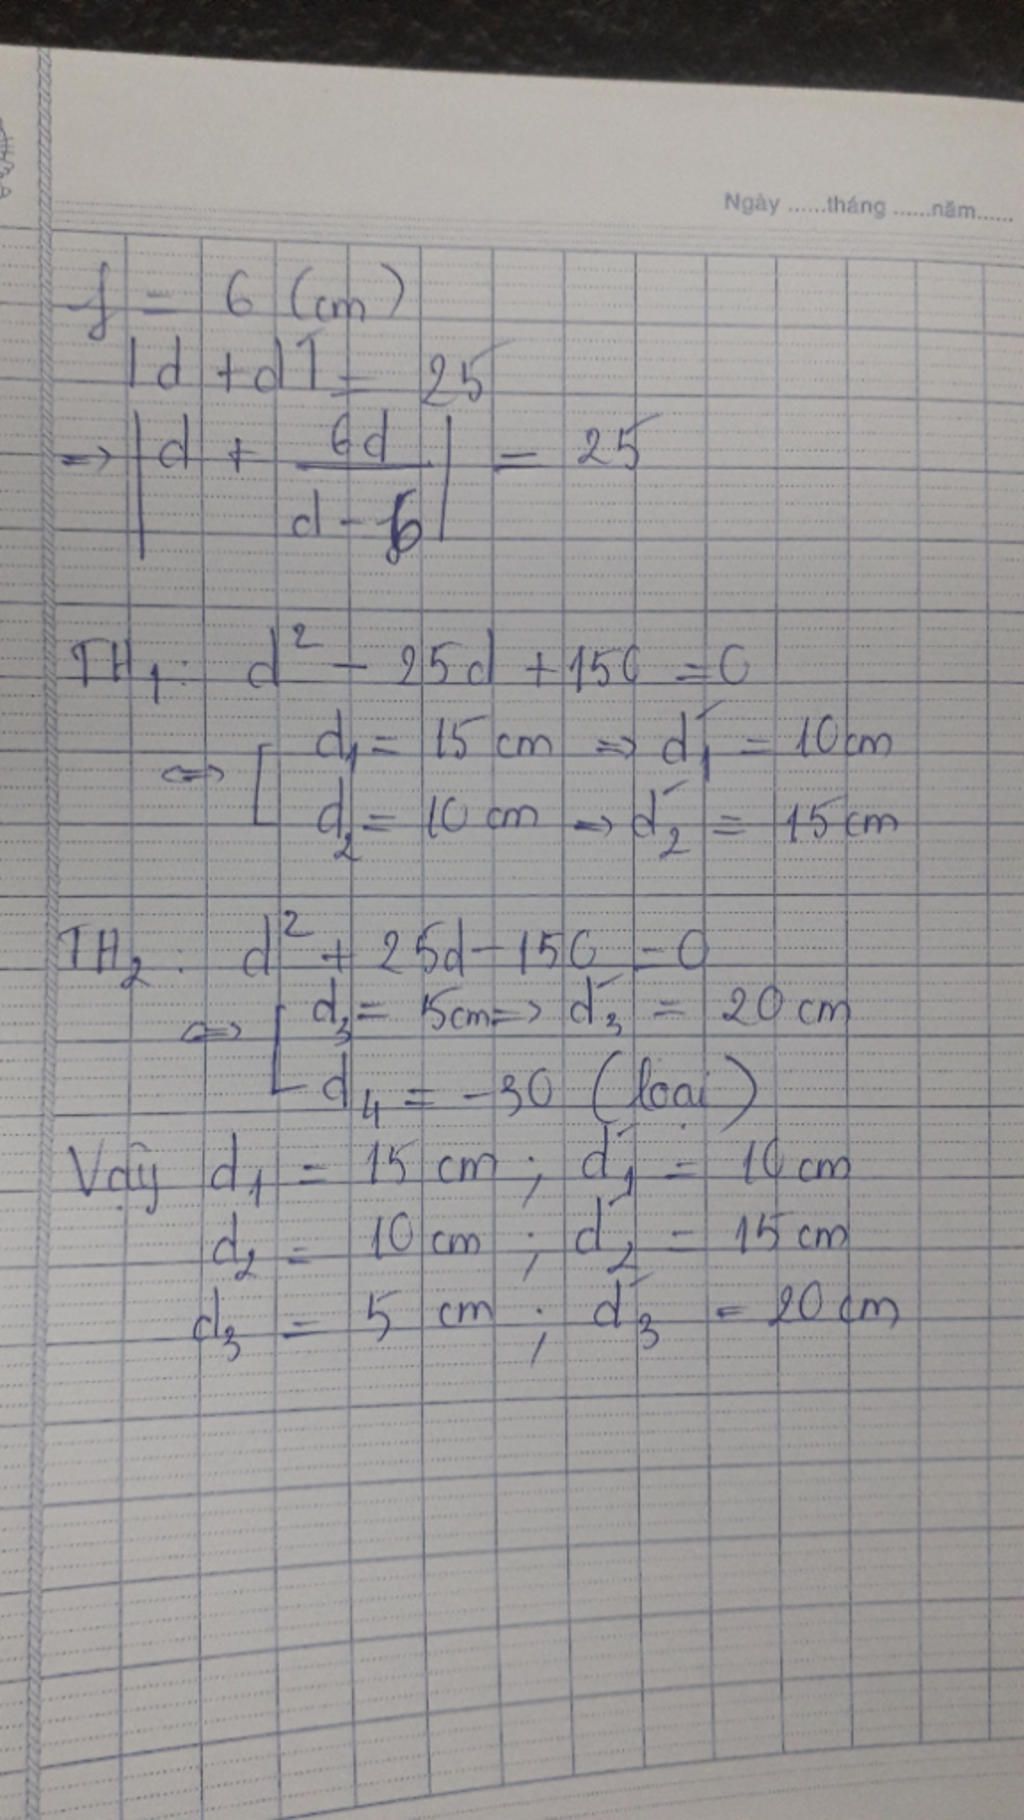 Ngày ......tháng ......năm......
f = 6 (cm)
|d + d'| = 25
=> |d + 6d/(d - 6)| = 25
TH1: d² - 25d + 150 = 0
<=> [ d1 = 15 cm => d'1 = 10 cm
d2 = 10 cm => d'2 = 15 cm
TH2: d² + 25d - 150 = 0
<=> [ d3 = 5cm => d'3 = 20 cm
d4 = -30 (loại)
Vậy d1 = 15 cm ; d'1 = 10 cm
d2 = 10 cm ; d'2 = 15 cm
d3 = 5 cm ; d'3 = 20 cm